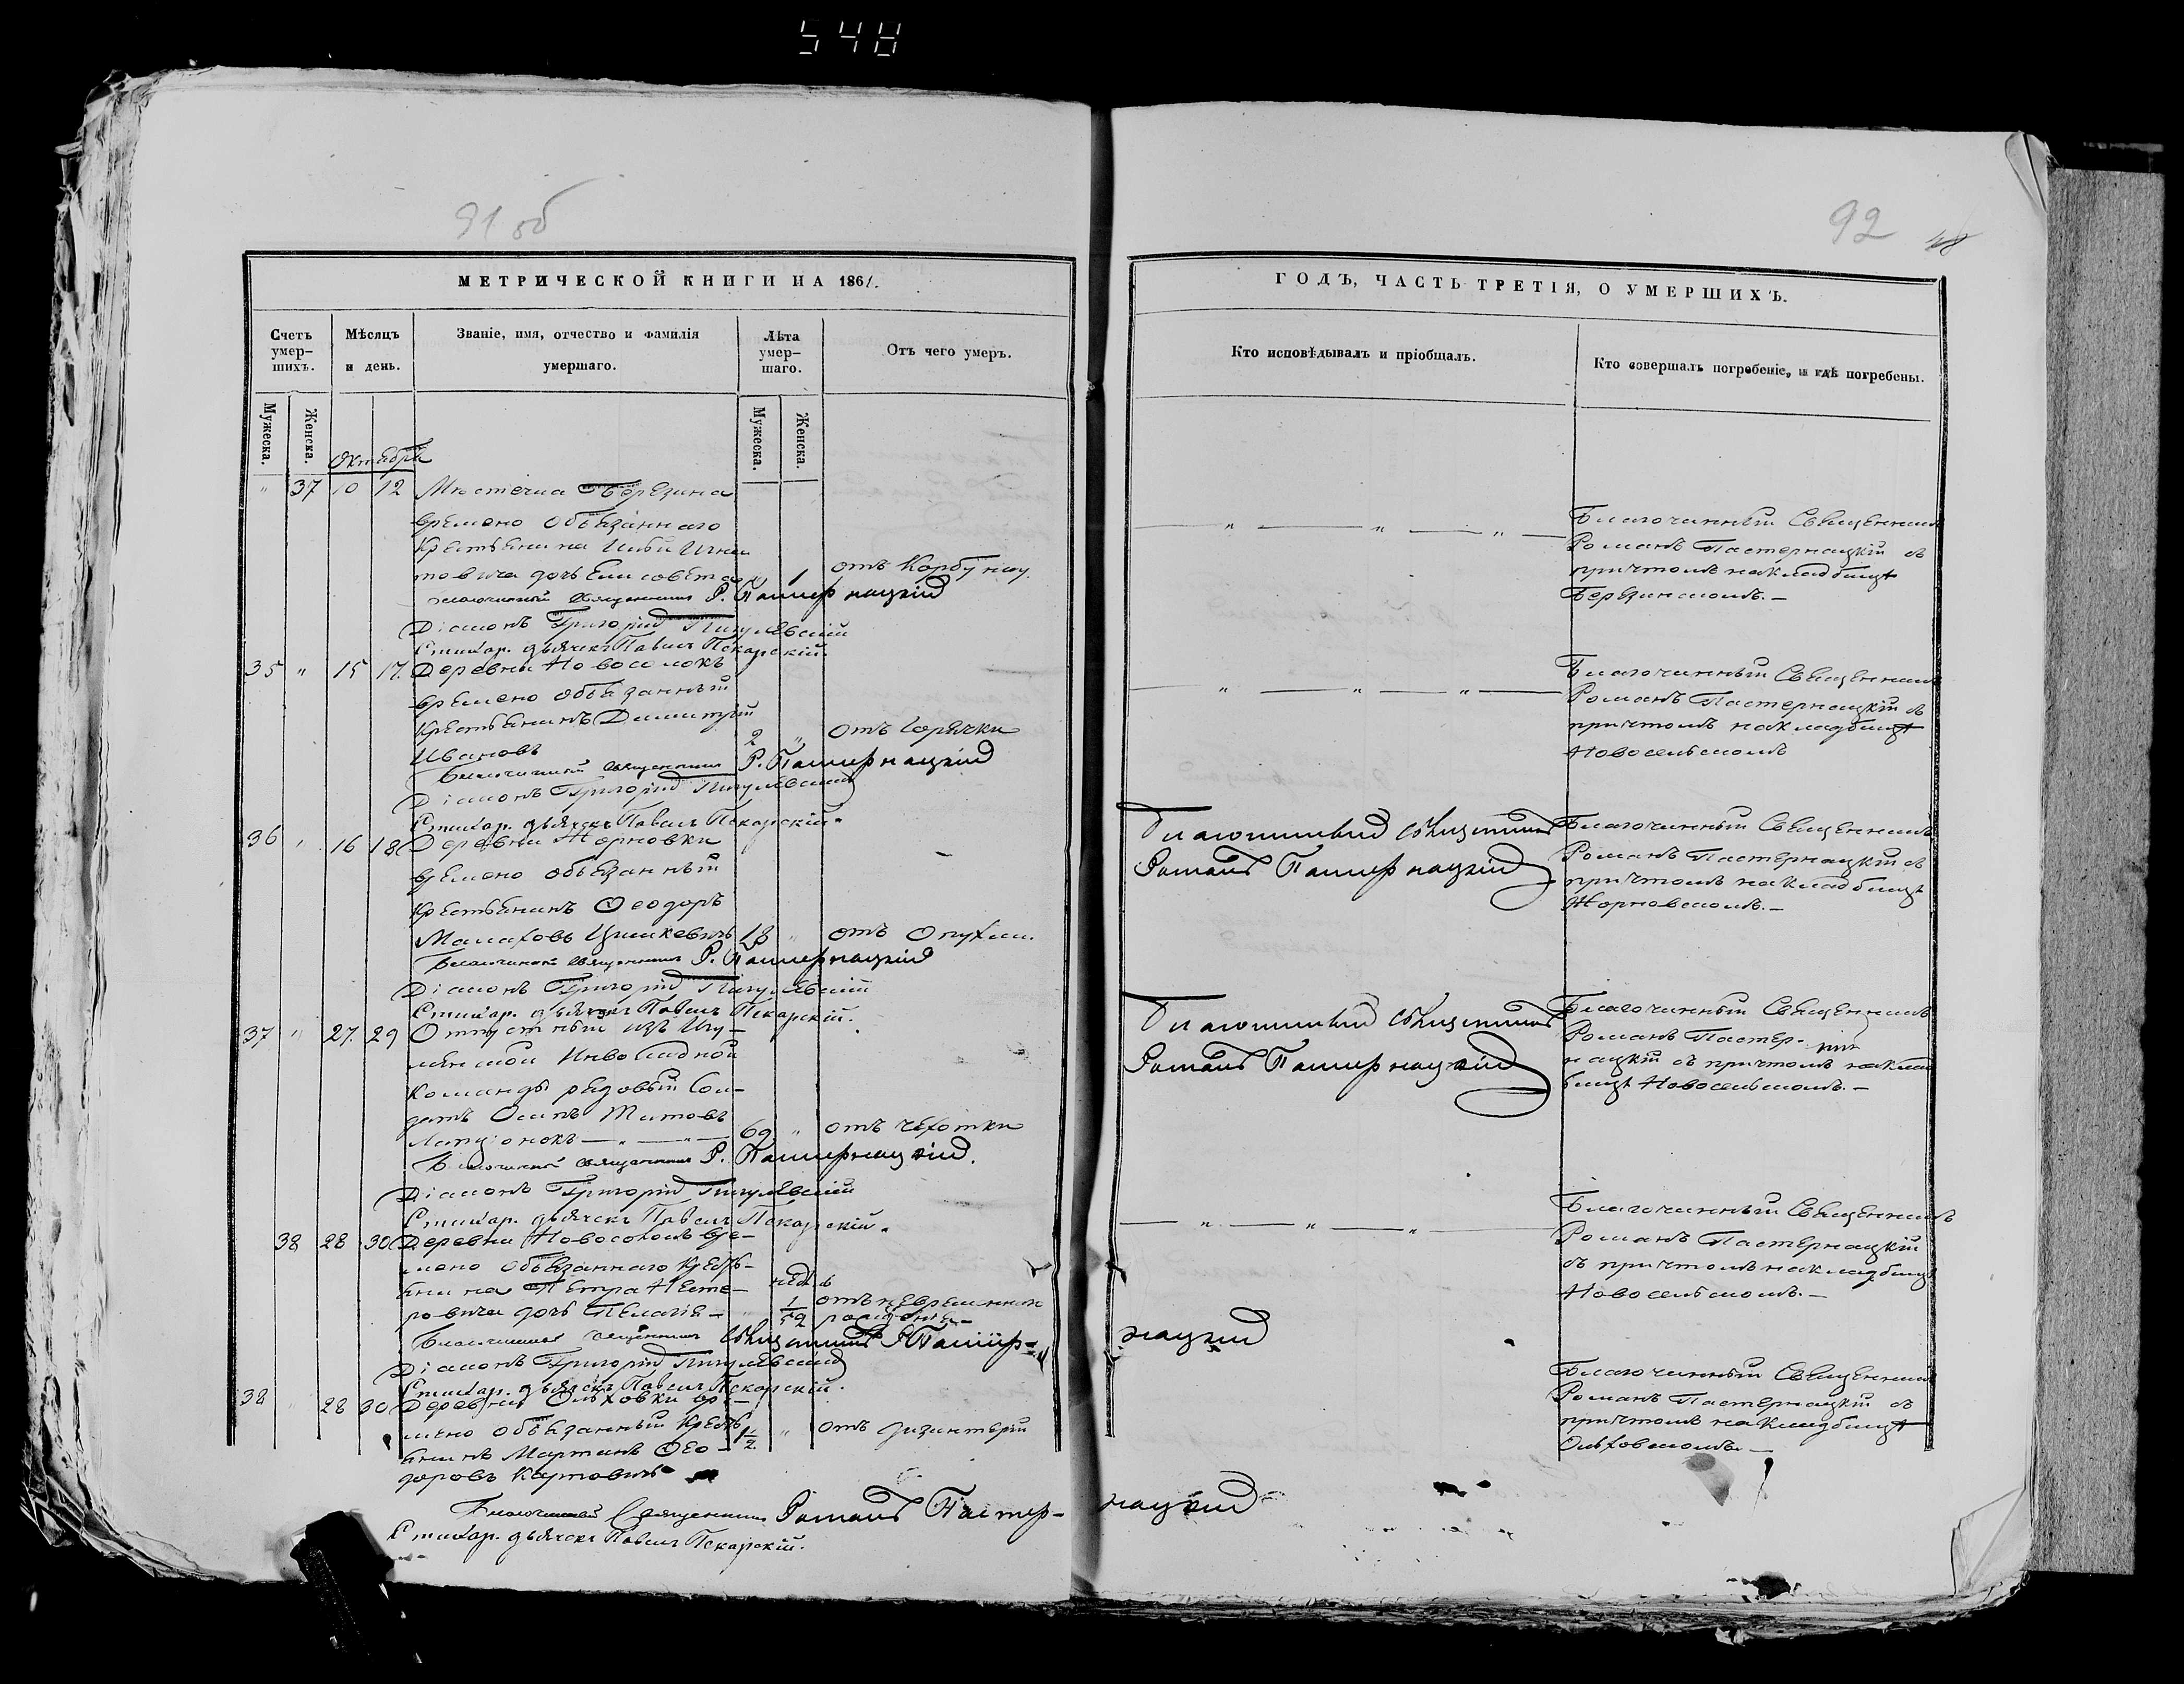 548
91 об
92
МЕТРИЧЕСКОЙ КНИГИ НА 1861.
ГОДЪ, ЧАСТЬ ТРЕТІЯ, О УМЕРШИХЪ.
Счетъ умер-шихъ.
Мѣсяцъ и день.
Званіе, имя, отчество и фамилія умершаго.
Лѣта умер-шаго.
Отъ чего умеръ.
Кто исповѣдывалъ и пріобщалъ.
Кто совершалъ погребеніе, и гдѣ погребены.
Мужеска.
Женска.
Мужеска.
Женска.
Октября
" 37 10 12 Мѣстечка Березина
времено обязаннаго
Крестьянина
товича дочь Елисовета " 1 отъ Корбунку.
Благочинный Священникъ Р. Пастернацкій
Діаконъ Григорій Пигулевскій
Стихар. дьячекъ Павелъ Пекарскій.
Благочинный Священникъ
Романъ Пастернацкій съ
причтомъ на кладбищѣ
Березинскомъ.—
35 " 15 17. Деревни Новоселокъ
времено обязанный
Крестьянинъ Димитрій
Ивановъ 2 " отъ горячки
Благочинный Священникъ Р. Пастернацкій
Діаконъ Григорій Пигулевскій
Стихар. дьячекъ Павелъ Пекарскій.
Благочинный Священникъ
Романъ Пастернацкій съ
причтомъ на кладбищѣ
Новосельскомъ
36 " 16 18 Деревни Жорновки
времено обязанный
Крестьянинъ Ѳеодоръ
Малаховъ Цимкевичъ 18 " отъ Опухли.
Благочинный Священникъ Р. Пастернацкій
Діаконъ Григорій Пигулевскій
Стихар. дьячекъ Павелъ Пекарскій.
Благочинный Священникъ
Романъ Пастернацкій
Благочинный Священникъ
Романъ Пастернацкій съ
причтомъ на кладбищѣ
Жорновскомъ.—
37 " 27. 29 Отпустный изъ Игу-
менской Инвалидной
Команды рядовый Сол-
датъ Осипъ Титовъ
Лапуцонокъ — " — " — 69 " отъ чехотки
Благочинный Священникъ Р. Пастернацкій.
Діаконъ Григорій Пигулевскій
Стихар. дьячекъ Павелъ Пекарскій.
Благочинный Священникъ
Романъ Пастернацкій
Благочинный Священникъ
Романъ Пастер-
нацкій съ причтомъ на клад
бищѣ Новосельскомъ.—
38 28 30 Деревни Новоселокъ вре-
мено обязаннаго кресть-
янина Петра Несте-
ровича дочь Пелагія— " недѣль 1/52 отъ невременнаго рожденія—
Благочинный Священникъ Священникъ Р Пастер-
нацкій
Діаконъ Григорій Пигулевскій
Стихар. дьячекъ Павелъ Пекарскій.
Благочинный Священникъ
Романъ Пастернацкій
съ причтомъ на кладбищѣ
Новосельскомъ.—
38 " 28 30 Деревни Ольховки вре-
мено обязанный кресть
янинъ Мартинъ Ѳео- 1/2 " отъ дизинтеріи
доровъ Карповичъ
Благочинный Священникъ Романъ Пастер-
нацкій
Стихар. дьячекъ Павелъ Пекарскій.
Благочинный Священникъ
Романъ Пастернацкій съ
причтомъ на кладбищѣ
Ольховскомъ.—